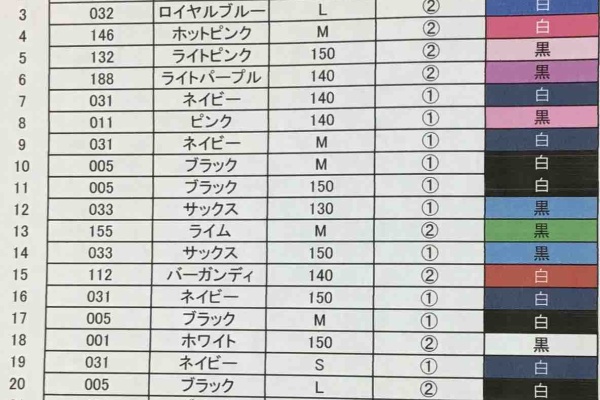 3 032 ロイヤルブルー L ② 白
4 146 ホットピンク M ② 白
5 132 ライトピンク 150 ② 黒
6 188 ライトパープル 140 ② 黒
7 031 ネイビー 140 ① 白
8 011 ピンク 140 ① 黒
9 031 ネイビー M ① 白
10 005 ブラック M ① 白
11 005 ブラック 150 ① 白
12 033 サックス 130 ① 黒
13 155 ライム M ② 黒
14 033 サックス 150 ① 黒
15 112 バーガンディ 140 ② 白
16 031 ネイビー 150 ① 白
17 005 ブラック M ① 白
18 001 ホワイト 150 ② 黒
19 031 ネイビー S ① 白
20 005 ブラック L ② 白